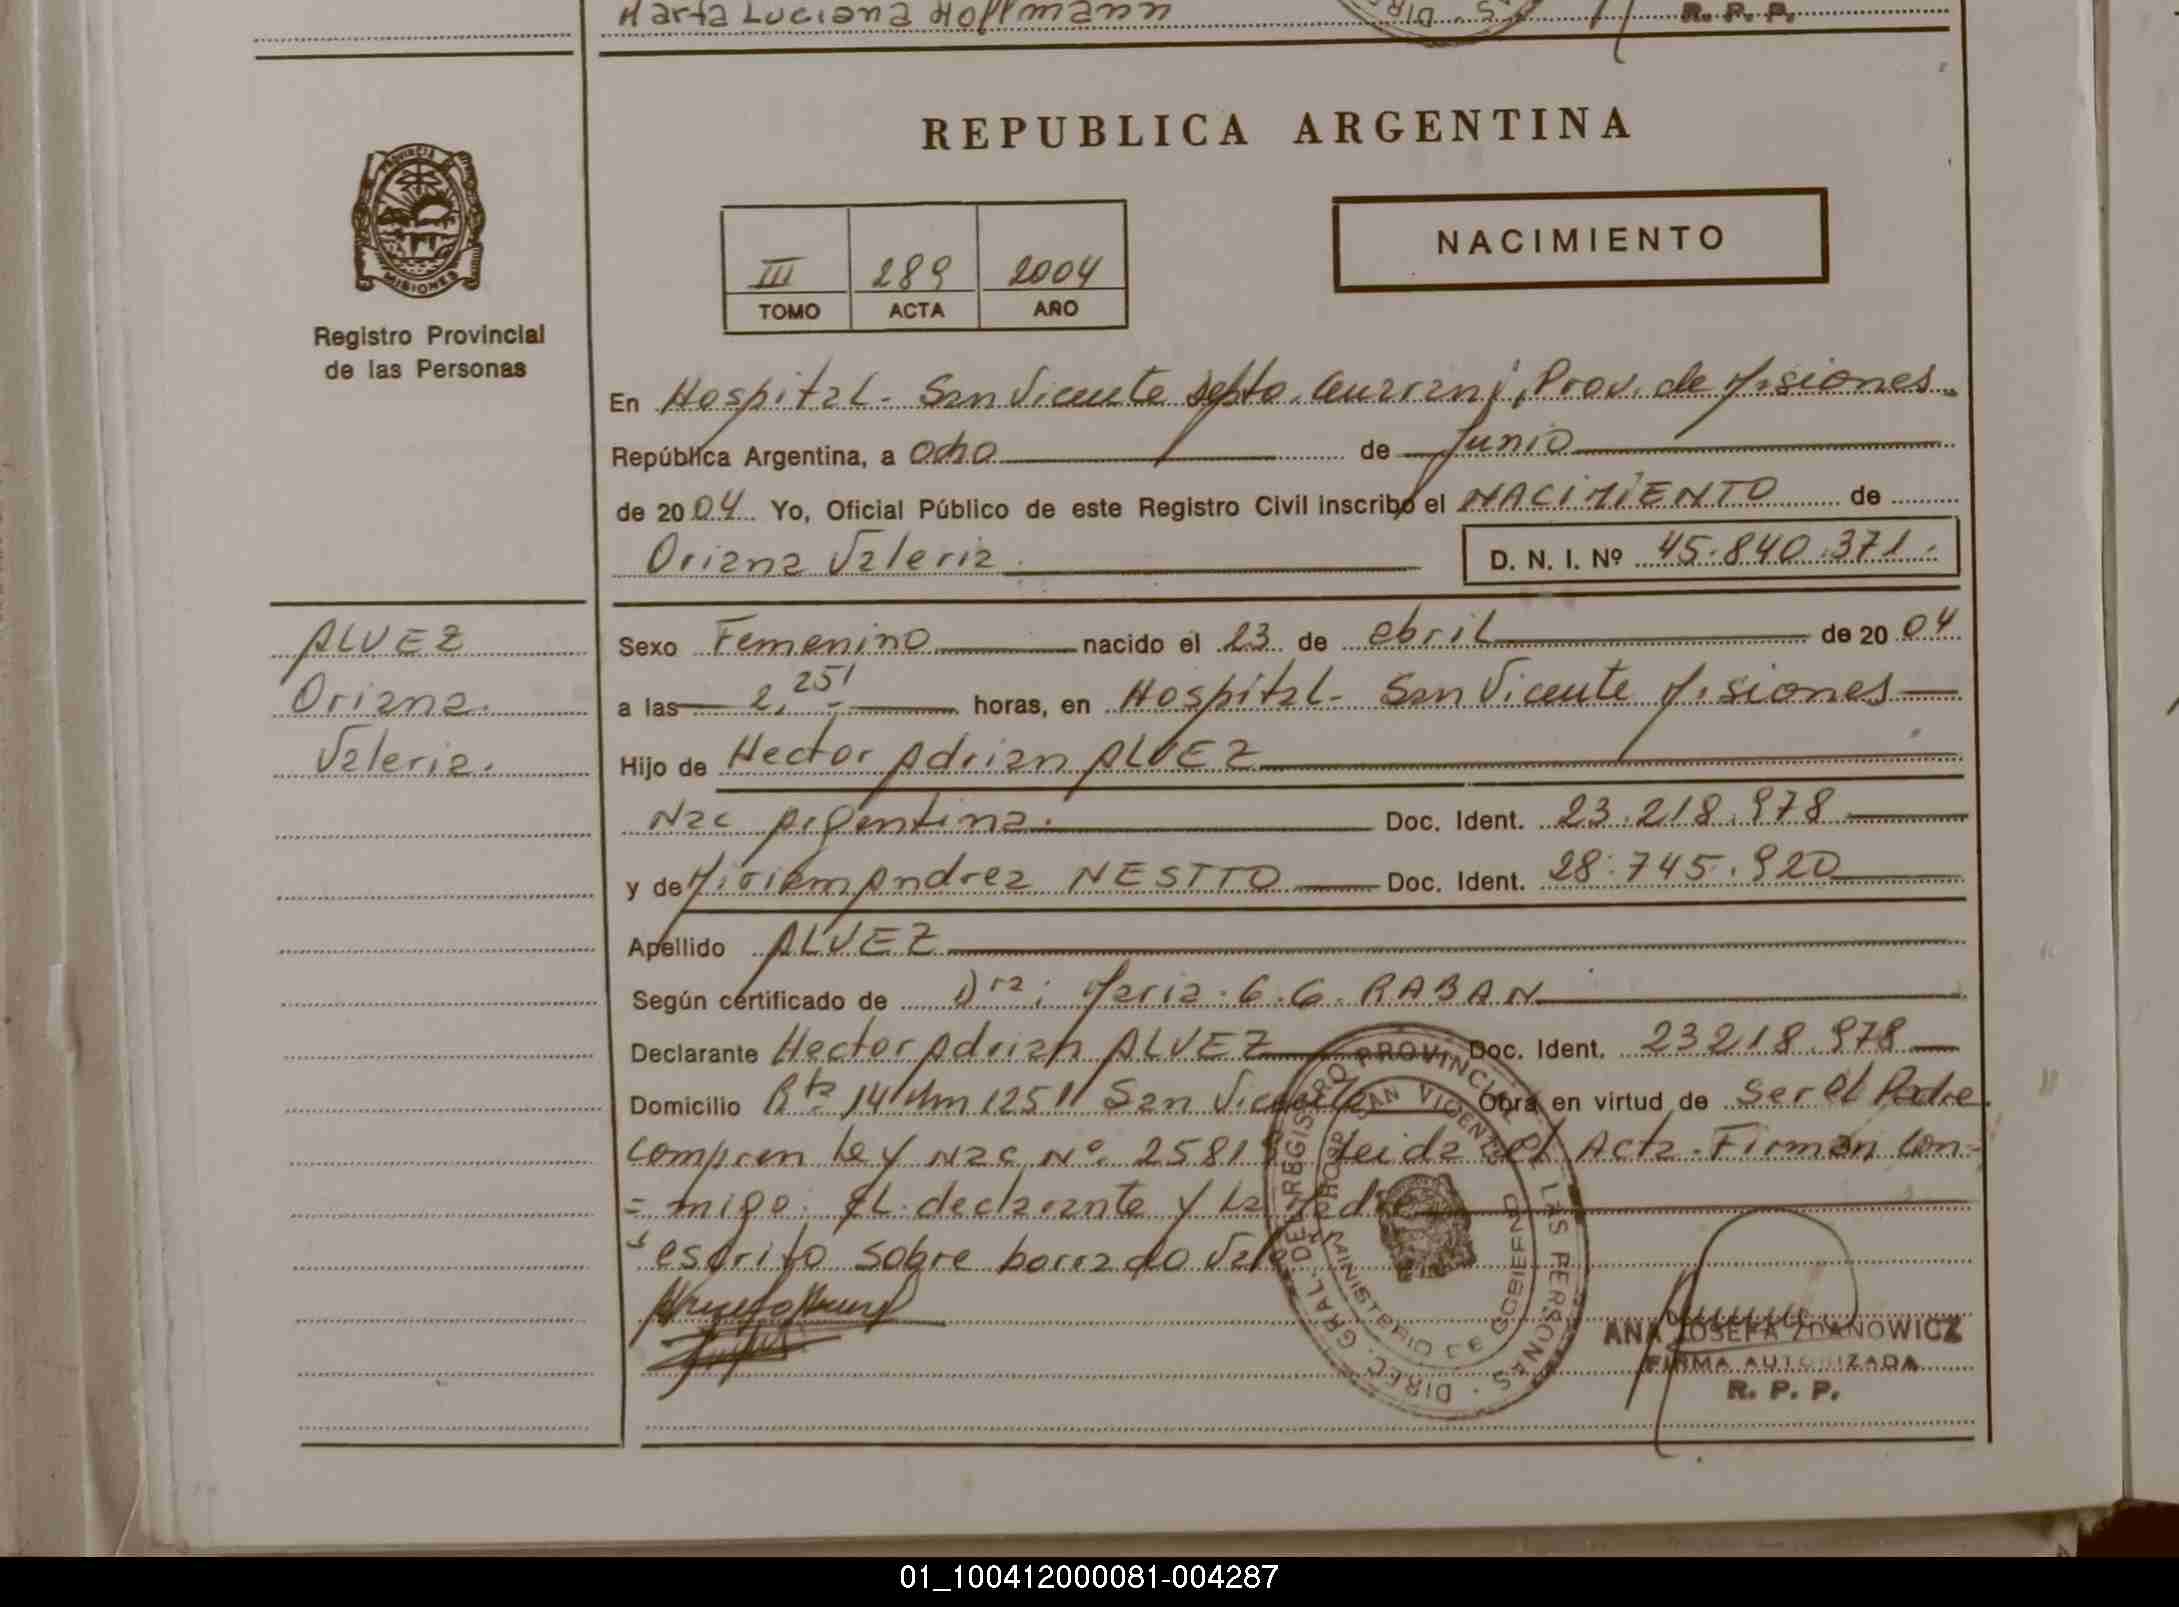 Marta Luciana Hoffmann
R. P. P.
REPUBLICA ARGENTINA
PROVINCIA
MISIONES
Registro Provincial
de las Personas
III 289 2004
TOMO ACTA AÑO
NACIMIENTO
En Hospital - San Vicente depto. Guarani, Prov. de Misiones
República Argentina, a ocho de Junio
de 2004 Yo, Oficial Público de este Registro Civil inscribo el NACIMIENTO de
Oriana Valeria
D. N. I. Nº 45.840.371.
ALVEZ
Oriana
Valeria.
Sexo Femenino nacido el 23 de abril de 2004
a las 2,25' horas, en Hospital - San Vicente Misiones
Hijo de Hector Adrian ALVEZ
Nac Argentina. Doc. Ident. 23.218.978
y de Miriam Andrea NESTTO Doc. Ident. 28.745.920
Apellido ALVEZ
Según certificado de Dra: Maria G. G. RABAN
Declarante Hector Adrian ALVEZ Doc. Ident. 23218.978
Domicilio Rta 14 Km 1251 San Vicente Obra en virtud de ser el Padre
compren Ley Nac Nº 25819 Leida el Acta. Firman con-
= migo: El declarante y La Madre
escrito sobre borrado Vale
DIREC. GRAL. DEL REGISTRO PROVINCIAL DE LAS PERSONAS
SAN VICENTE
MINISTERIO DE GOBIERNO
ANA JOSEFA ZDANOWICZ
FIRMA AUTORIZADA
R. P. P.
01_100412000081-004287